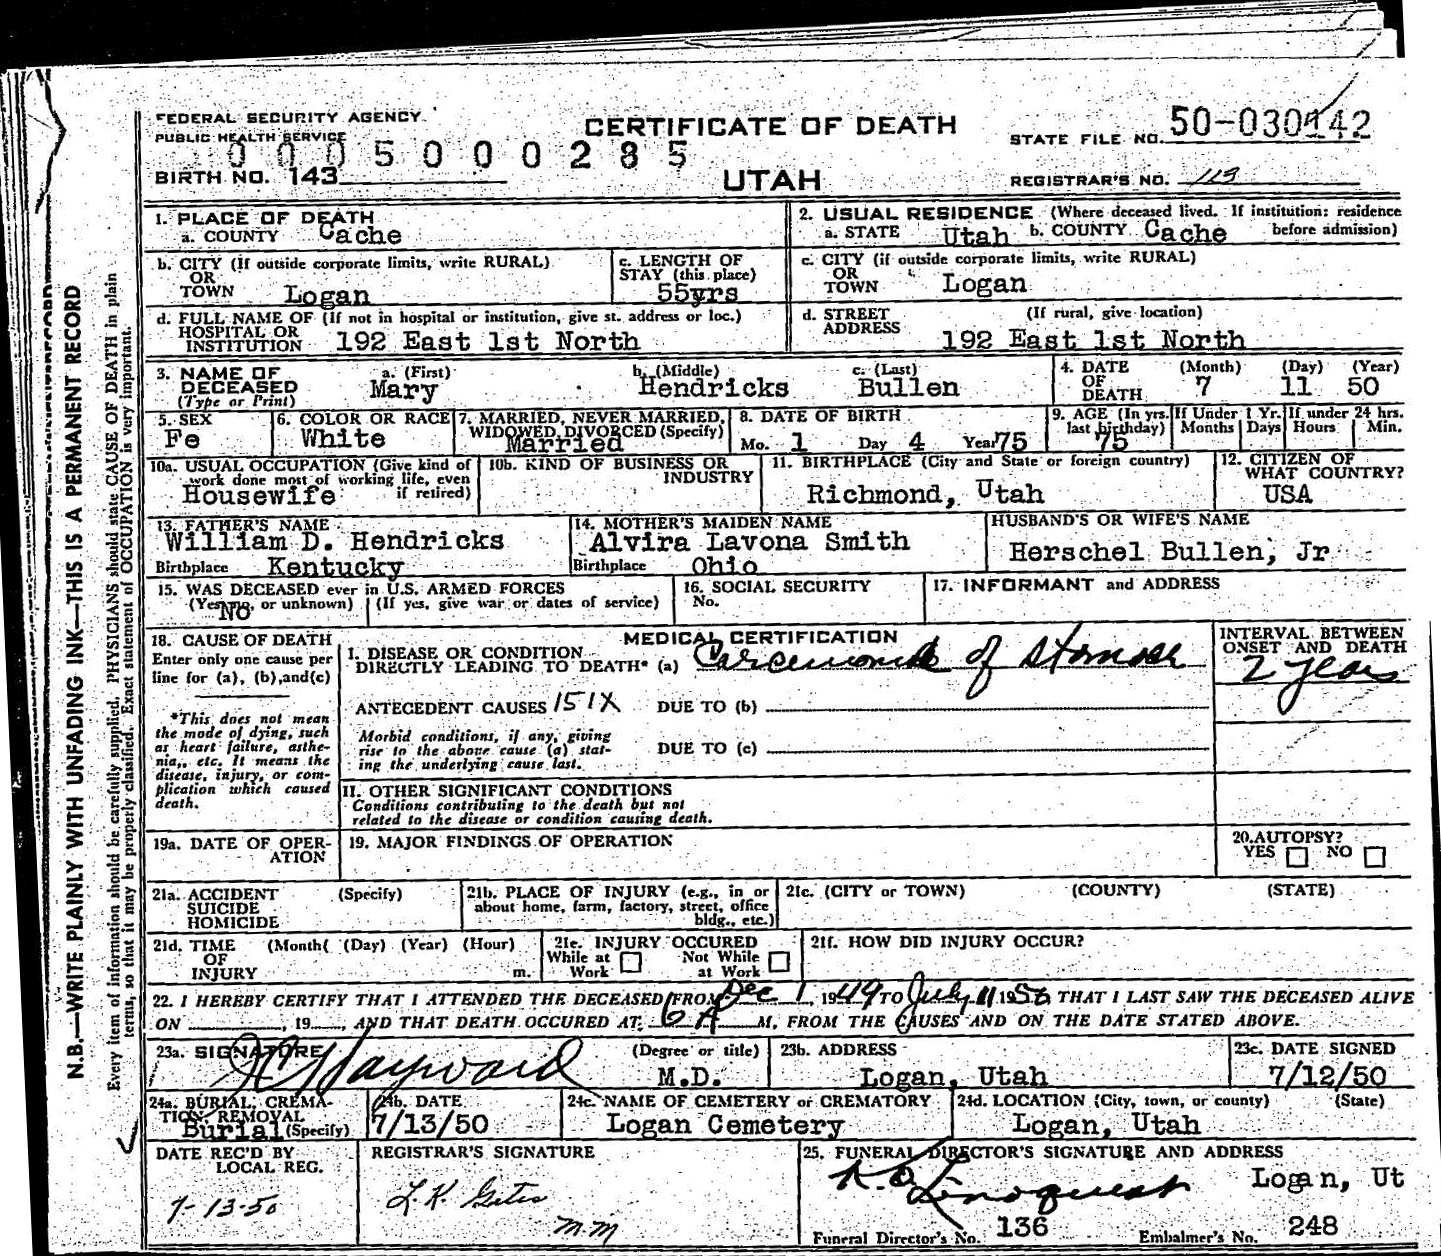 FEDERAL SECURITY AGENCY
PUBLIC HEALTH SERVICE
CERTIFICATE OF DEATH
STATE FILE NO. 50-030142
0005000285
BIRTH NO. 143
UTAH
REGISTRAR'S NO. 113
1. PLACE OF DEATH
a. COUNTY Cache
2. USUAL RESIDENCE (Where deceased lived. If institution: residence before admission)
a. STATE Utah b. COUNTY Cache
b. CITY (If outside corporate limits, write RURAL)
OR
TOWN Logan
c. LENGTH OF
STAY (this place)
55yrs
c. CITY (if outside corporate limits, write RURAL)
OR
TOWN Logan
d. FULL NAME OF (If not in hospital or institution, give st. address or loc.)
HOSPITAL OR
INSTITUTION 192 East 1st North
d. STREET (If rural, give location)
ADDRESS
192 East 1st North
3. NAME OF
DECEASED
(Type or Print)
a. (First)
Mary
b. (Middle)
Hendricks
c. (Last)
Bullen
4. DATE
OF
DEATH
(Month) (Day) (Year)
7 11 50
5. SEX
Fe
6. COLOR OR RACE
White
7. MARRIED, NEVER MARRIED,
WIDOWED, DIVORCED (Specify)
Married
8. DATE OF BIRTH
Mo. 1 Day 4 Year 75
9. AGE (In yrs.
last birthday)
75
If Under 1 Yr.
Months Days
If under 24 hrs.
Hours Min.
10a. USUAL OCCUPATION (Give kind of
work done most of working life, even
if retired)
Housewife
10b. KIND OF BUSINESS OR
INDUSTRY
11. BIRTHPLACE (City and State or foreign country)
Richmond, Utah
12. CITIZEN OF
WHAT COUNTRY?
USA
13. FATHER'S NAME
William D. Hendricks
Birthplace Kentucky
14. MOTHER'S MAIDEN NAME
Alvira Lavona Smith
Birthplace Ohio
HUSBAND'S OR WIFE'S NAME
Herschel Bullen, Jr
15. WAS DECEASED ever in U.S. ARMED FORCES
(Yes, no, or unknown) (If yes, give war or dates of service)
No
16. SOCIAL SECURITY
No.
17. INFORMANT and ADDRESS
18. CAUSE OF DEATH
Enter only one cause per
line for (a), (b), and (c)
*This does not mean
the mode of dying, such
as heart failure, asthe-
nia, etc. It means the
disease, injury, or com-
plication which caused
death.
MEDICAL CERTIFICATION
I. DISEASE OR CONDITION
DIRECTLY LEADING TO DEATH* (a) Carcenoma of stomach
INTERVAL BETWEEN
ONSET AND DEATH
2 years
ANTECEDENT CAUSES 151X DUE TO (b)
Morbid conditions, if any, giving
rise to the above cause (a) stat-
ing the underlying cause last.
DUE TO (c)
II. OTHER SIGNIFICANT CONDITIONS
Conditions contributing to the death but not
related to the disease or condition causing death.
19a. DATE OF OPER-
ATION
19. MAJOR FINDINGS OF OPERATION
20. AUTOPSY?
YES NO
21a. ACCIDENT (Specify)
SUICIDE
HOMICIDE
21b. PLACE OF INJURY (e.g., in or
about home, farm, factory, street, office
bldg., etc.)
21c. (CITY or TOWN) (COUNTY) (STATE)
21d. TIME (Month( (Day) (Year) (Hour)
OF
INJURY m.
21e. INJURY OCCURED
While at Work Not While at Work
21f. HOW DID INJURY OCCUR?
22. I HEREBY CERTIFY THAT I ATTENDED THE DECEASED FROM Dec 1, 1949 TO July 11 1950 THAT I LAST SAW THE DECEASED ALIVE
ON , 19 , AND THAT DEATH OCCURED AT 6 A M, FROM THE CAUSES AND ON THE DATE STATED ABOVE.
23a. SIGNATURE
Hayward
(Degree or title)
M.D.
23b. ADDRESS
Logan, Utah
23c. DATE SIGNED
7/12/50
24a. BURIAL, CREMA-
TION, REMOVAL
Burial (Specify)
24b. DATE
7/13/50
24c. NAME OF CEMETERY or CREMATORY
Logan Cemetery
24d. LOCATION (City, town, or county) (State)
Logan, Utah
DATE REC'D BY
LOCAL REG.
7-13-50
REGISTRAR'S SIGNATURE
L K Gates
M M
25. FUNERAL DIRECTOR'S SIGNATURE AND ADDRESS
Lindquist Logan, Ut
Funeral Director's No. 136 Embalmer's No. 248
N.B.—WRITE PLAINLY WITH UNFADING INK—THIS IS A PERMANENT RECORD
Every item of information should be carefully supplied. PHYSICIANS should state CAUSE OF DEATH in plain
terms, so that it may be properly classified. Exact statement of OCCUPATION is very important.